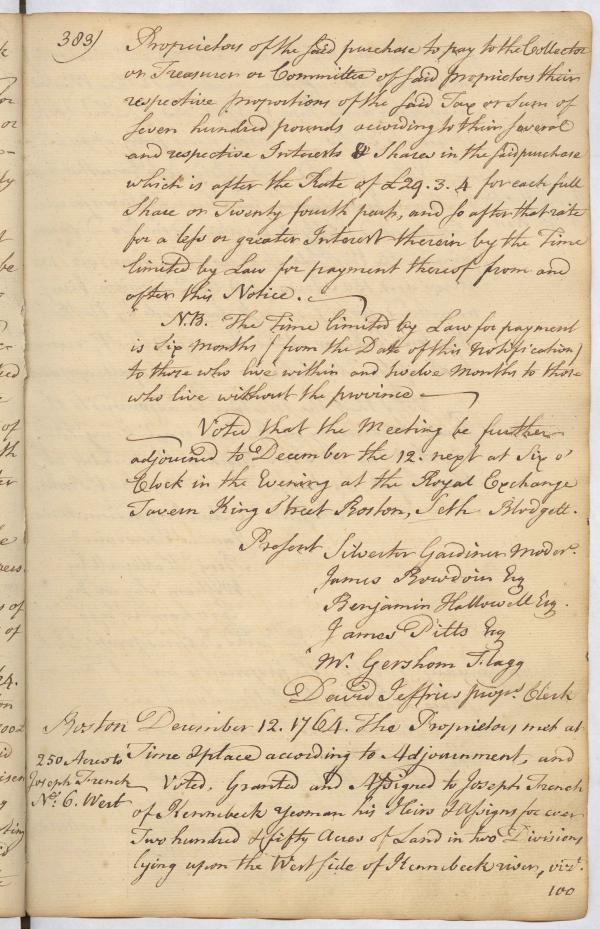 383)
Proprietors of the said purchase to pay to the Collector
or Treasurer or Committee of said proprietors their
respective proportions of the said Tax or Sum of
Seven hundred pounds according to their several
and respective Interests & Shares in the said purchase
which is after the Rate of £29. 3. 4 for each full
Share or Twenty fourth part, and so after that rate
for a less or greater Interest therein by the Time
limited by Law for payment thereof from and
after this Notice.
N.B. The Time limited by Law for payment
is Six Months (from the Date of this Notification)
to those who live within and twelve Months to those
who live without the province
Voted that the Meeting be further
adjourned to December the 12. next at Six o'
Clock in the Evening at the Royal Exchange
Tavern King Street Boston, Seth Blodgett.
Present Silvester Gardiner Moder.
James Bowdoin Esq
Benjamin Hallowell Esq.
James Pitts Esq
Mr. Gershom Flagg
David Jeffries props. Clerk
Boston December 12. 1764. The Proprietors met at
Time & place according to Adjournment, and
250 Acres to
Joseph French
No. 6. West
Voted, Granted and Assigned to Joseph French
of Kennebeck Yeoman his Heirs & Assigns for ever
Two hundred & fifty Acres of Land in two Divisions
lying upon the West side of Kennebeck river, vizt.
100